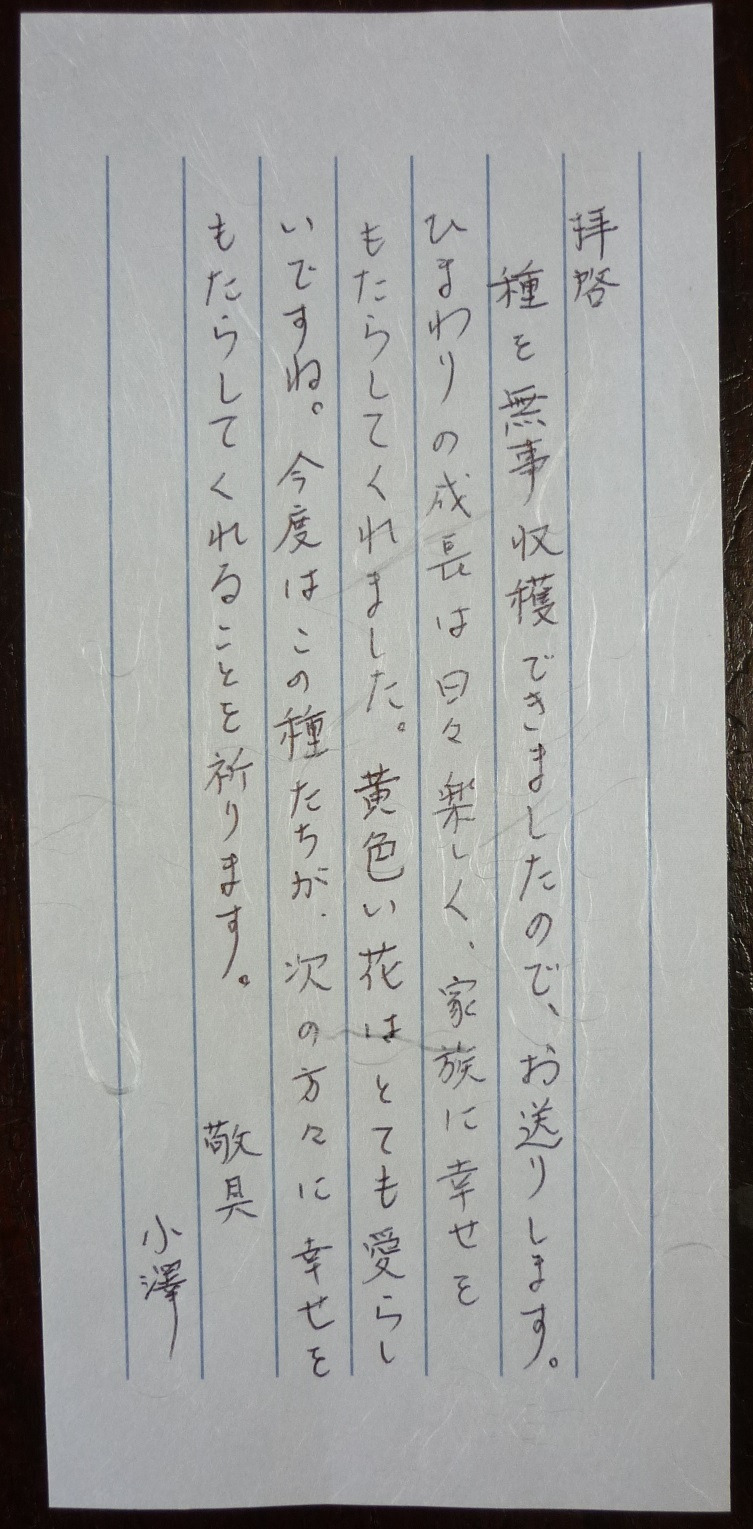 拝啓
種を無事収穫できましたので、お送りします。
ひまわりの成長は日々楽しく、家族に幸せを
もたらしてくれました。黄色い花はとても愛らし
いですね。今度はこの種たちが、次の方々に幸せを
もたらしてくれることを祈ります。
敬具
小澤